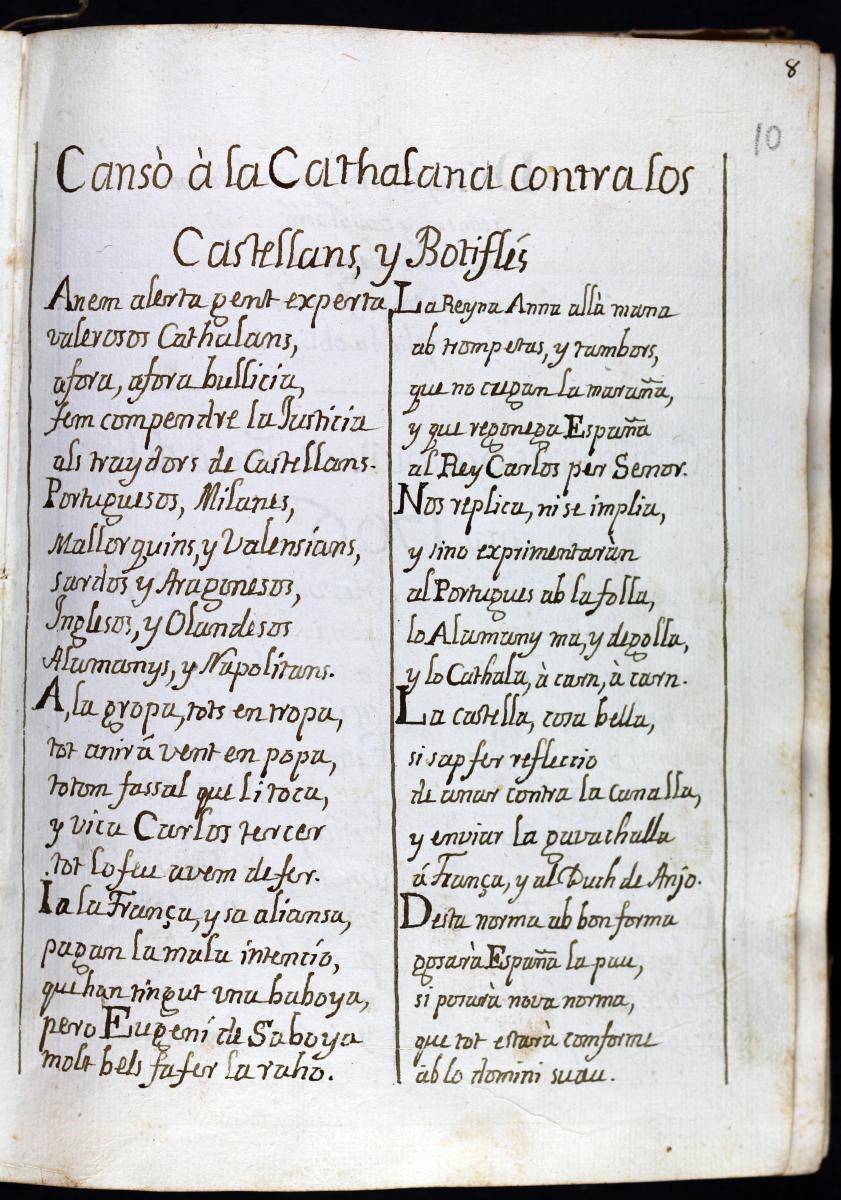 8
10
Cansò à la Cathalana contra los
Castellans, y Botiflés
Anem alerta gent experta,
valerosos Cathalans,
afora, afora bullicia,
fem compendre la Justicia
als traydors de Castellans.
Portuguesos, Milanes,
Mallorquins, y Valensians,
sardos y Aragonesos,
Inglesos, y Olandesos
Alamanys, y Napolitans.
A, la gropa, tots en tropa,
tot anirá vent en popa,
totom fassal que li toca,
y vica Carlos tercer
tot lo feu avem de fer.
Ia la França, y sa aliansa,
pagan la mala intencio,
que han tingut vna baboya,
pero Eugeni de Saboya
molt bels fa fer la raho.
La Reyna Anna allà mana
ab trompetas, y tambors,
que no cugan la maraña,
y que regonega España
al Rey Carlos per Senor.
Nos replica, ni se implia,
y sino exprimentaràn
al Portugues ab la folla,
lo Alamany ma, y degolla,
y lo Cathala, à carn, à carn.
La castella, cosa bella,
si sap fer reflectio
de anar contra la canalla,
y enviar la gavachalla
á França, y al Duch de Anjo.
Desta norma ab bon forma
gosarà España la pau,
si posarà nova norma,
que tot estarà comforme
ab lo domini suau.